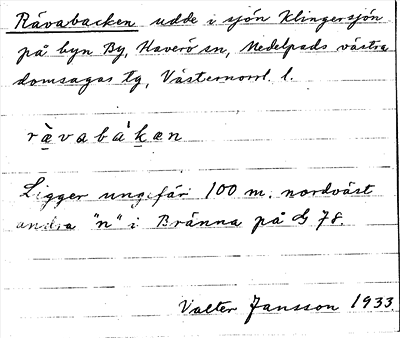 Rävabacken udde i sjön Klingersjön
på byn By, Haverö sn, Medelpads västra
domsagas tg, Västernorrl. l.
rävabákæn
Ligger ungefär 100 m. nordväst
andra "n" i Bränna på G 78.
Valter Jansson 1933.